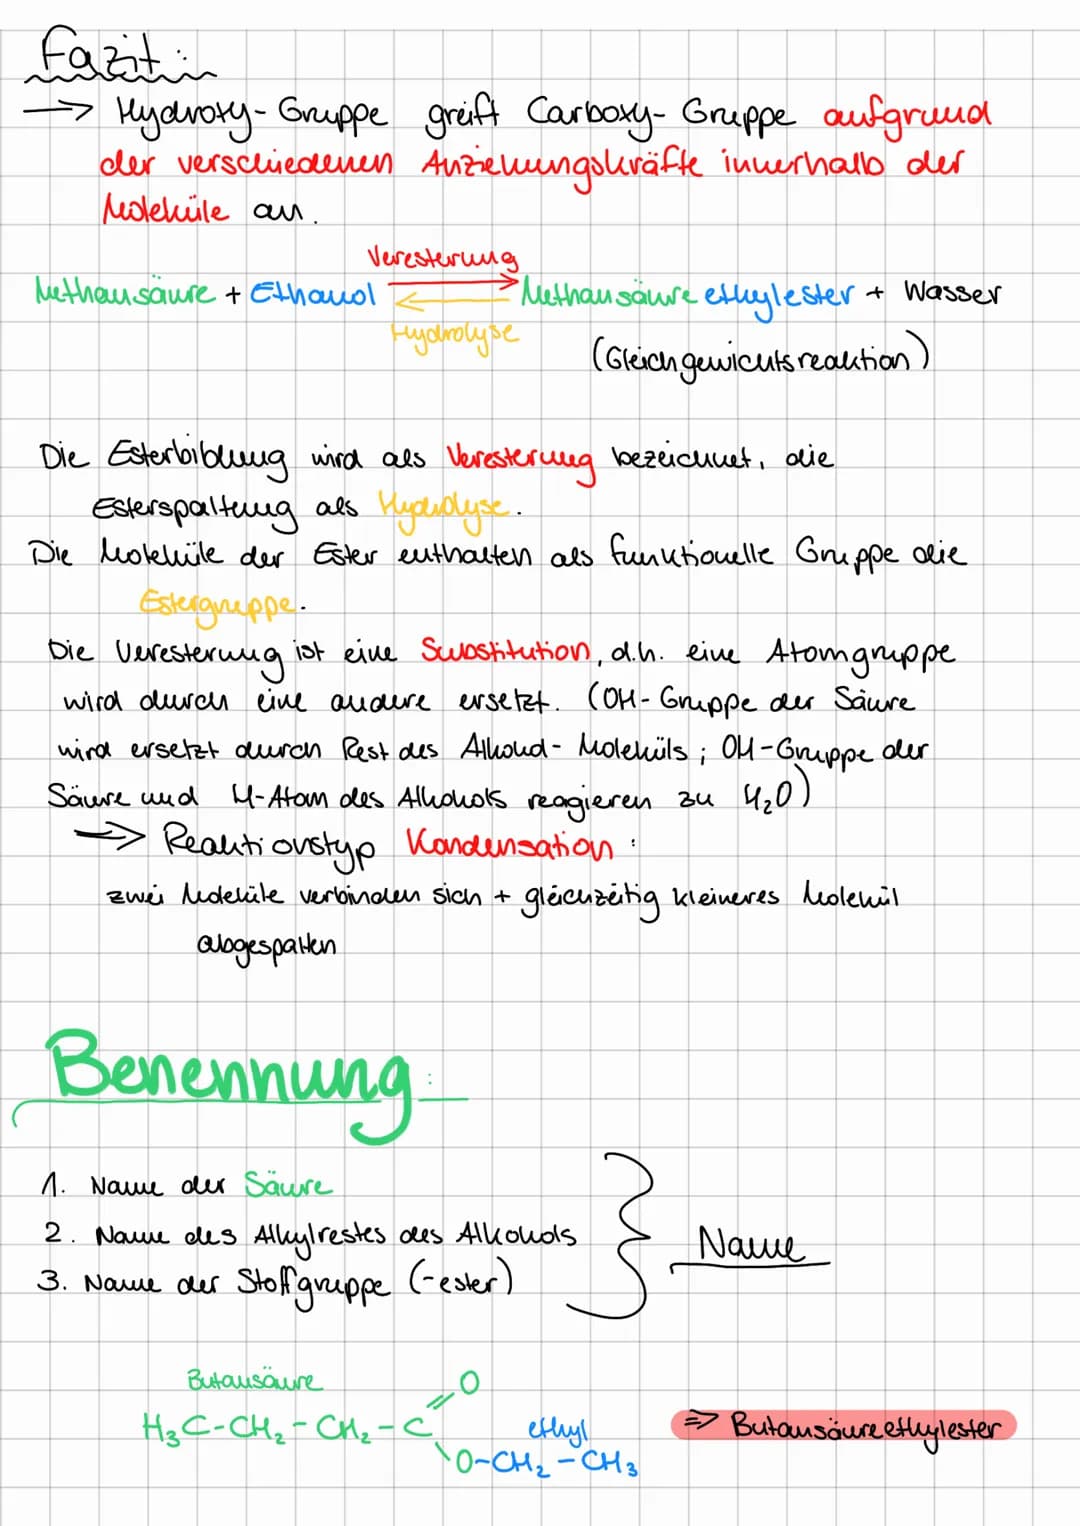 Fazit:
→ Hydroxy-Gruppe greift Carboxy-Gruppe aufgrund
der verschiedenen Anziehungskräfte innerhalb der
Moleküle an.
Veresterung
Methansäure + Ethanol ⇌ Methansäureethylester + Wasser
Hydrolyse
(Gleichgewichtsreaktion)
Die Esterbiblung wird als Veresterung bezeichnet, die
Esterspaltung als Hydrolyse.
Die Moleküle der Ester enthalten als funktionelle Gruppe die
Estergruppe.
Die Veresterung ist eine Substitution, d.h. eine Atomgruppe
wird durch eine andere ersetzt. (OH-Gruppe der Säure
wird ersetzt durch Rest des Alkohol-Moleküls; OH-Gruppe der
Säure und H-Atom des Alkohols reagieren zu H₂O)
⇒ Reaktionstyp Kondensation:
zwei Moleküle verbinden sich + gleichzeitig kleineres Molekül
abgespalten
Benennung:
1. Name der Säure
2. Name des Alkylrestes des Alkohols
3. Name der Stoffgruppe (-ester)
Name
Butansäure
O
H₃C-CH₂-CH₂-C
ethyl
O-CH₂-CH₃
⇒ Butansäureethylester